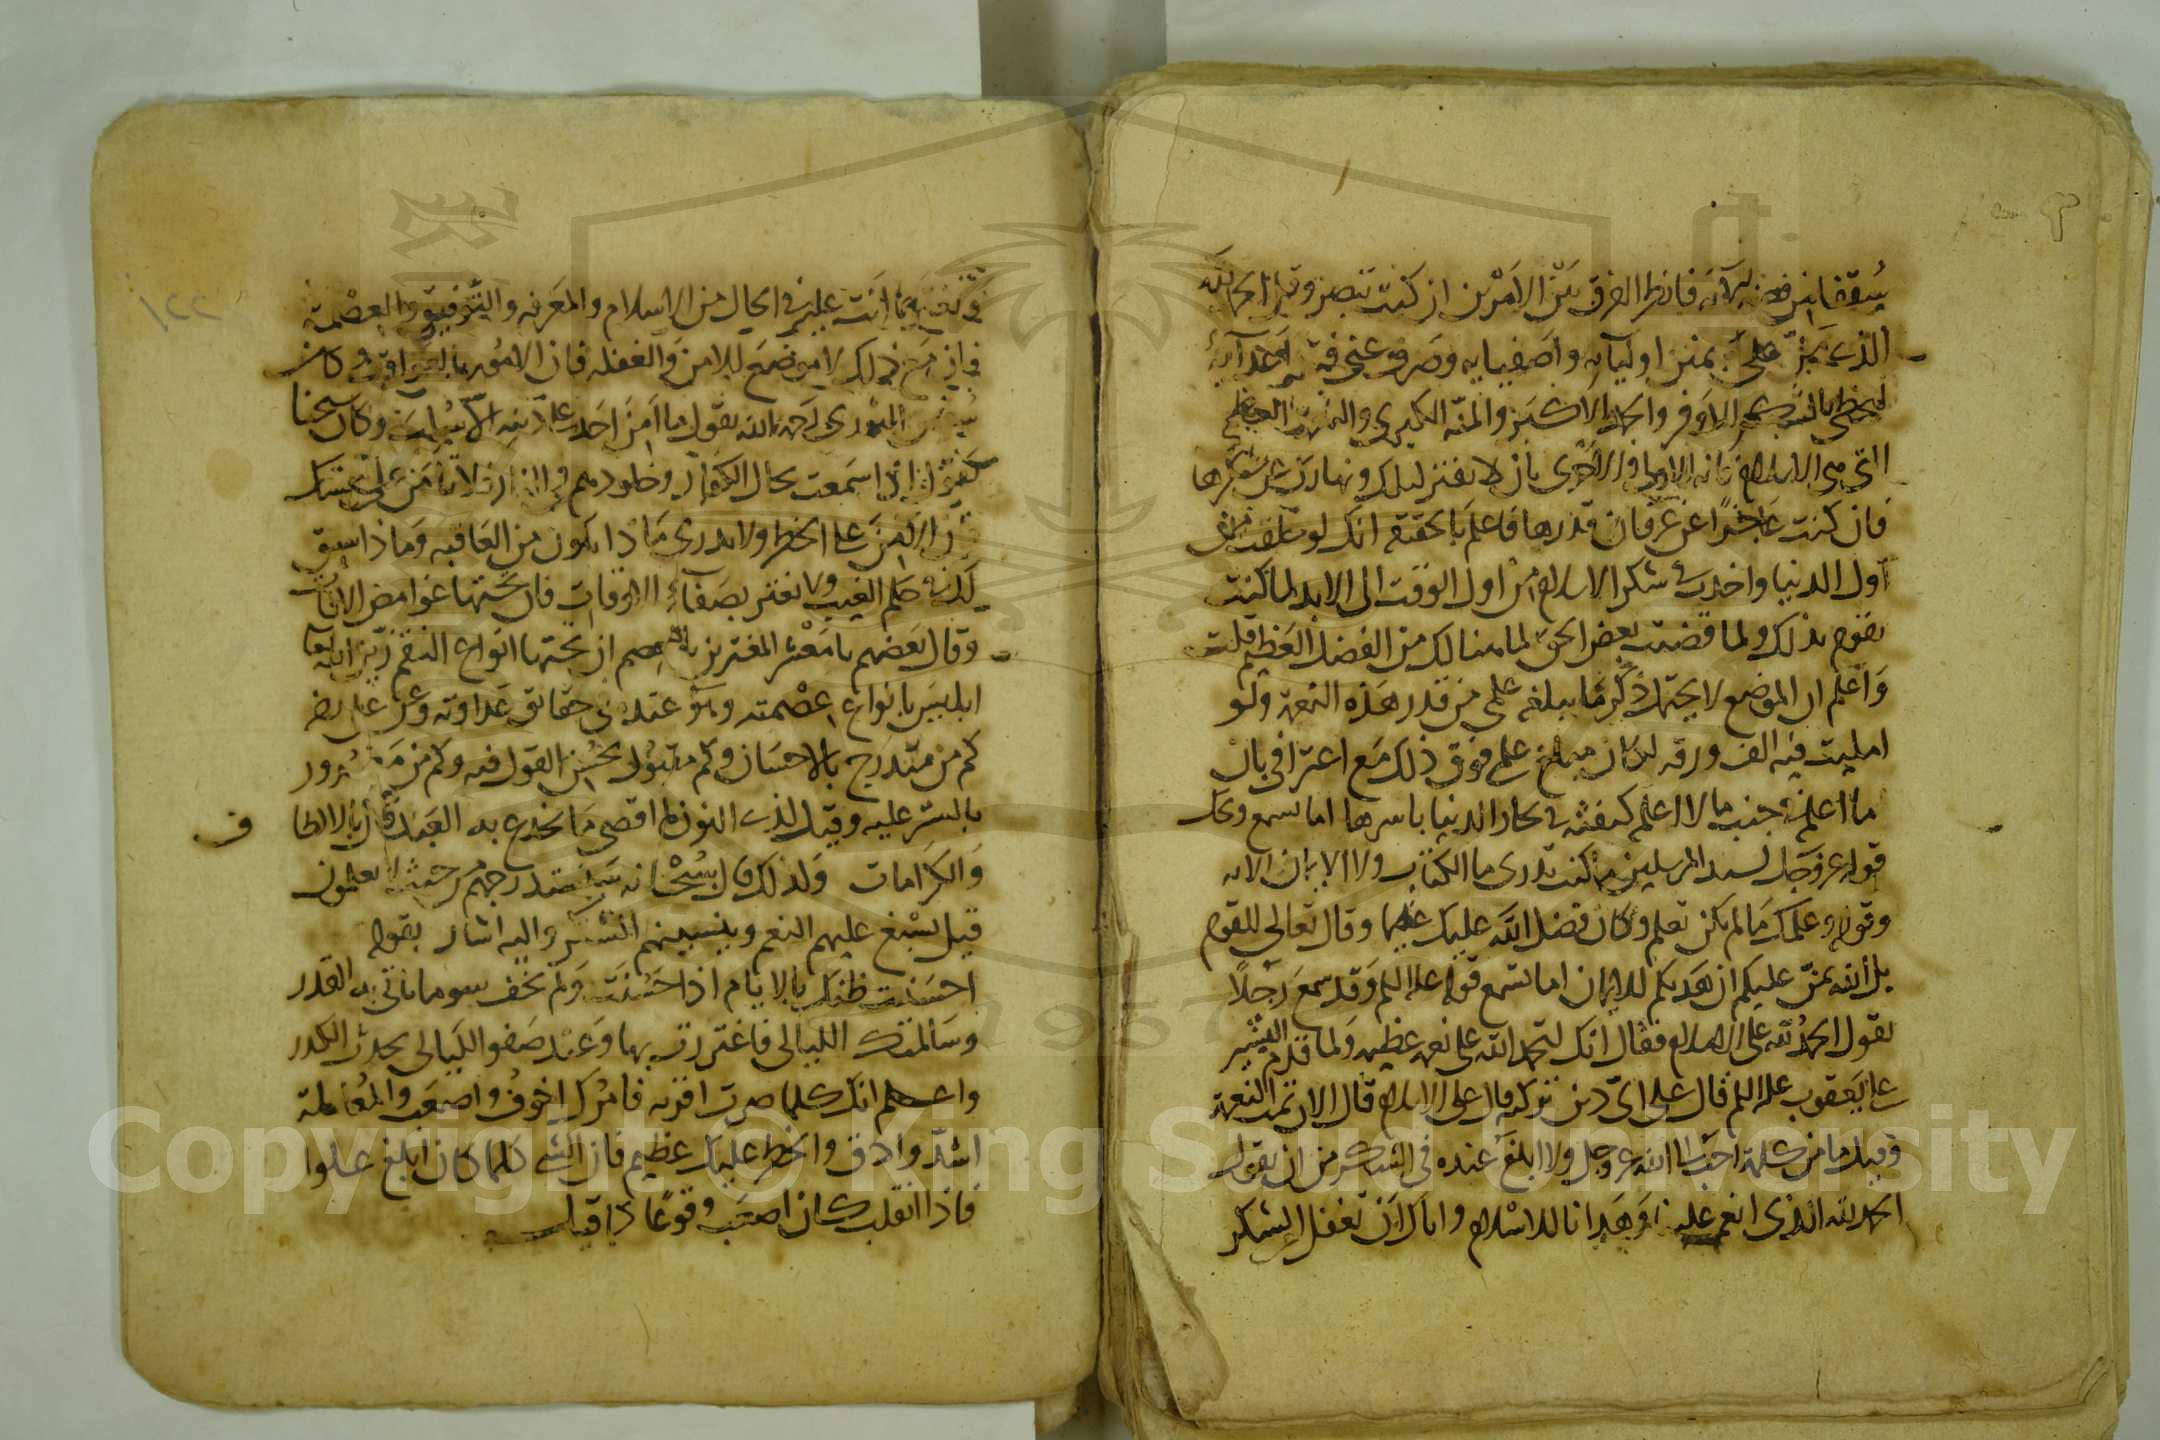 سقفا من فضة الآية فانظر الفرق بين الامرين ان كنت تبصر وقل الحمد لله
الذى من على بمنن اوليائه واصفيائه وصرف عنى فتنة اعدائه
لنحظى بالشكر الاوفر والحمد الاكبر والمنة الكبرى والنعمة العظمى
التى هى الاسلام فانه الاولى والاحرى بان لا تفتر ليلك ونهارك عن شكرها
فان كنت عاجزا عن عرفان قدرها فاعلم بالحقيقة انك لو خلقت من
اول الدنيا واخذت فى شكر الاسلام من اول الوقت الى الابد لما كنت
تقوم بذلك ولما قضيت بعض الحق لما هنالك من الفضل العظيم قلت
واعلم ان الموضع لا يحتمل ذكر ما يبلغه علمى من قدر هذه النعمة ولو
امليت فيه الف ورقه لكان مبلغ علمى فوق ذلك مع اعترافى بان
ما اعلمه فى جنب ما لا اعلم كنفثه فى بحار الدنيا باسرها اما تسمع ويحك
قوله عز وجل لسيد المرسلين ما كنت تدرى ما الكتاب ولا الايمان الايه
وقوله وعلمك ما لم تكن تعلم وكان فضل الله عليك عظيما وقال تعالى لقوم
بل الله يمن عليكم ان هديكم للايمان اما تسمع قوله عليه السلم وقد سمع رجلا
يقول الحمد لله على الاسلام فقال انك لتحمد الله على نعمة عظيمه ولما قدم البشير
على يعقوب عليه السلم قال على اى دين تركته قال على الاسلام قال الان تمت النعمة
وقيل ما من كلمة احب الى الله عز وجل ولا ابلغ عنده فى الشكر من ان يقول
الحمد لله الذى انعم علينا وهدانا للاسلام واياك ان تغفل الشكر
وتغتر بما انت عليه فى الحال من الاسلام والمعرفه والتوفيق والعصمة
فانه مع ذلك لا موضع للامن والغفله فان الامور بالعواقب وكان
سفين الثورى رحمه الله يقول ما امن احد على دينه الا سلب وكان شيخنا
يقول اذا سمعت بحال الكفار وخلودهم فى النار فلا تامن على نفسك
فان الامر على الخطر ولا تدرى ماذا يكون من العاقبه وماذا سبق
لك فى حكم الغيب ولا تغتر بصفاء الاوقات فان تحتها غوامض الافات
وقال بعضهم يا معشر المغترين بالعصم ان تحتها انواع النقم زين الله تعالى
ابليس بانواع عصمته وهو عنده فى حقائق عداوته وعن على رضه
كم من مستدرج بالاحسان وكم مفتون بحسن القول فيه وكم من مغرور
بالستر عليه وقيل لذى النون ما اقصى ما يخدع به العبد قال بالالطا
ف
والكرامات ولذلك قال سبحانه سنستدرجهم من حيث لا يعلمون
قيل نسبغ عليهم النعم وننسينهم الشكر واليه اشار بقوله
احسنت ظنك بالايام اذ حسنت ولم تخف سوما ياتى به القدر
وسالمتك الليالى فاغتررت بها وعند صفو الليالى يحدث الكدر
واعلم انك كلما صرت اقرب فامرك اخوف واصعب والمعاملة
اشد وادق والخطر عليك عظيم فان الشى كلما كان ابلغ علوا
فاذا انقلب كان اصعب وقوعا كما قيل
١٢٢